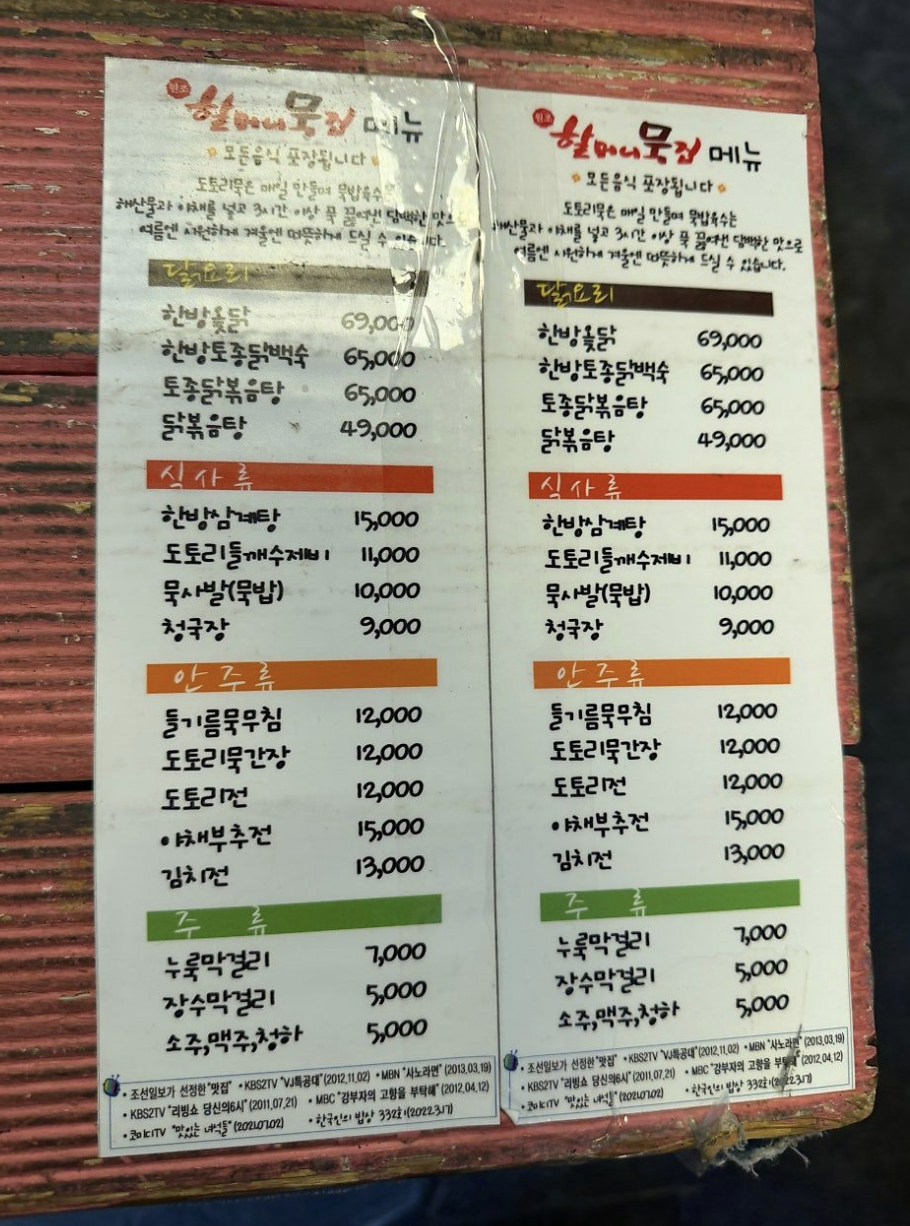 원조 할머니묵집 메뉴
모든음식 포장됩니다
도토리묵은 매일 만들며 묵밥육수
해산물과 야채를 넣고 3시간 이상 푹 끓여낸 담백한 맛으
여름엔 시원하게 겨울엔 따뜻하게 드실 수 있습니다.
닭요리
한방옻닭 69,000
한방토종닭백숙 65,000
토종닭볶음탕 65,000
닭볶음탕 49,000
식사류
한방삼계탕 15,000
도토리들깨수제비 11,000
묵사발(묵밥) 10,000
청국장 9,000
안주류
들기름묵무침 12,000
도토리묵간장 12,000
도토리전 12,000
야채부추전 15,000
김치전 13,000
주 류
누룩막걸리 7,000
장수막걸리 5,000
소주,맥주,청하 5,000
• 조선일보가 선정한 "맛집" • KBS2TV "VJ특공대" (2012,11,02) • MBN "사노라면" (2013,03,19)
• KBS2TV "리빙쇼 당신의6시" (2011,07,21) • MBC "강부자의 고향을 부탁해" (2012,04,12)
• 코미디TV "맛있는 녀석들" (2021.07.02) • 한국인의 밥상 332회 (2022.3.17)
원조 할머니묵집 메뉴
모든음식 포장됩니다
도토리묵은 매일 만들며 묵밥육수는
해산물과 야채를 넣고 3시간 이상 푹 끓여낸 담백한 맛으로
여름엔 시원하게 겨울엔 따뜻하게 드실 수 있습니다.
닭요리
한방옻닭 69,000
한방토종닭백숙 65,000
토종닭볶음탕 65,000
닭볶음탕 49,000
식사류
한방삼계탕 15,000
도토리들깨수제비 11,000
묵사발(묵밥) 10,000
청국장 9,000
안주류
들기름묵무침 12,000
도토리묵간장 12,000
도토리전 12,000
야채부추전 15,000
김치전 13,000
주 류
누룩막걸리 7,000
장수막걸리 5,000
소주,맥주,청하 5,000
• 조선일보가 선정한 "맛집" • KBS2TV "VJ특공대" (2012,11,02) • MBN "사노라면" (2013,03,19)
• KBS2TV "리빙쇼 당신의6시" (2011,07,21) • MBC "강부자의 고향을 부탁해" (2012,04,12)
• 코미디TV "맛있는 녀석들" (2021.07.02) • 한국인의 밥상 332회 (2022.3.17)